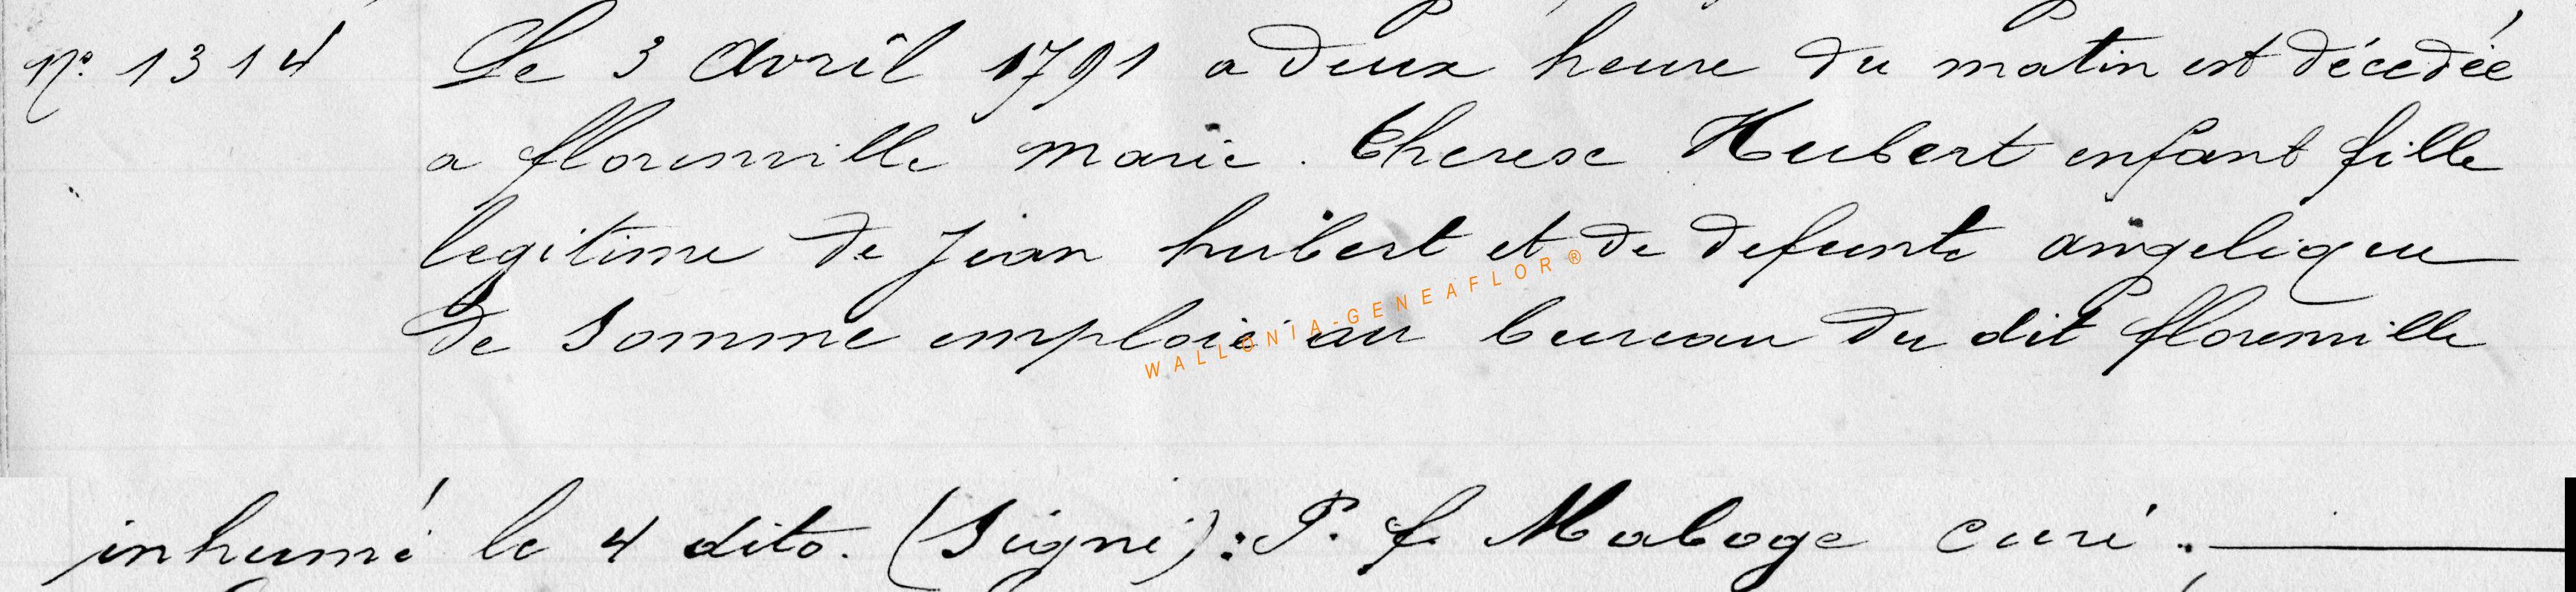 N° 1314 Le 3 Avril 1791 a deux heure du matin est décedée
a florenville marie. therese Hubert enfant fille
legitime de jean hubert et de defunte angelique
de somme emploié au bureau du dit florenville
inhumé le 4 dito. (Signé): P. f. Maboge curé.
WALLONIA-GENEAFLOR®